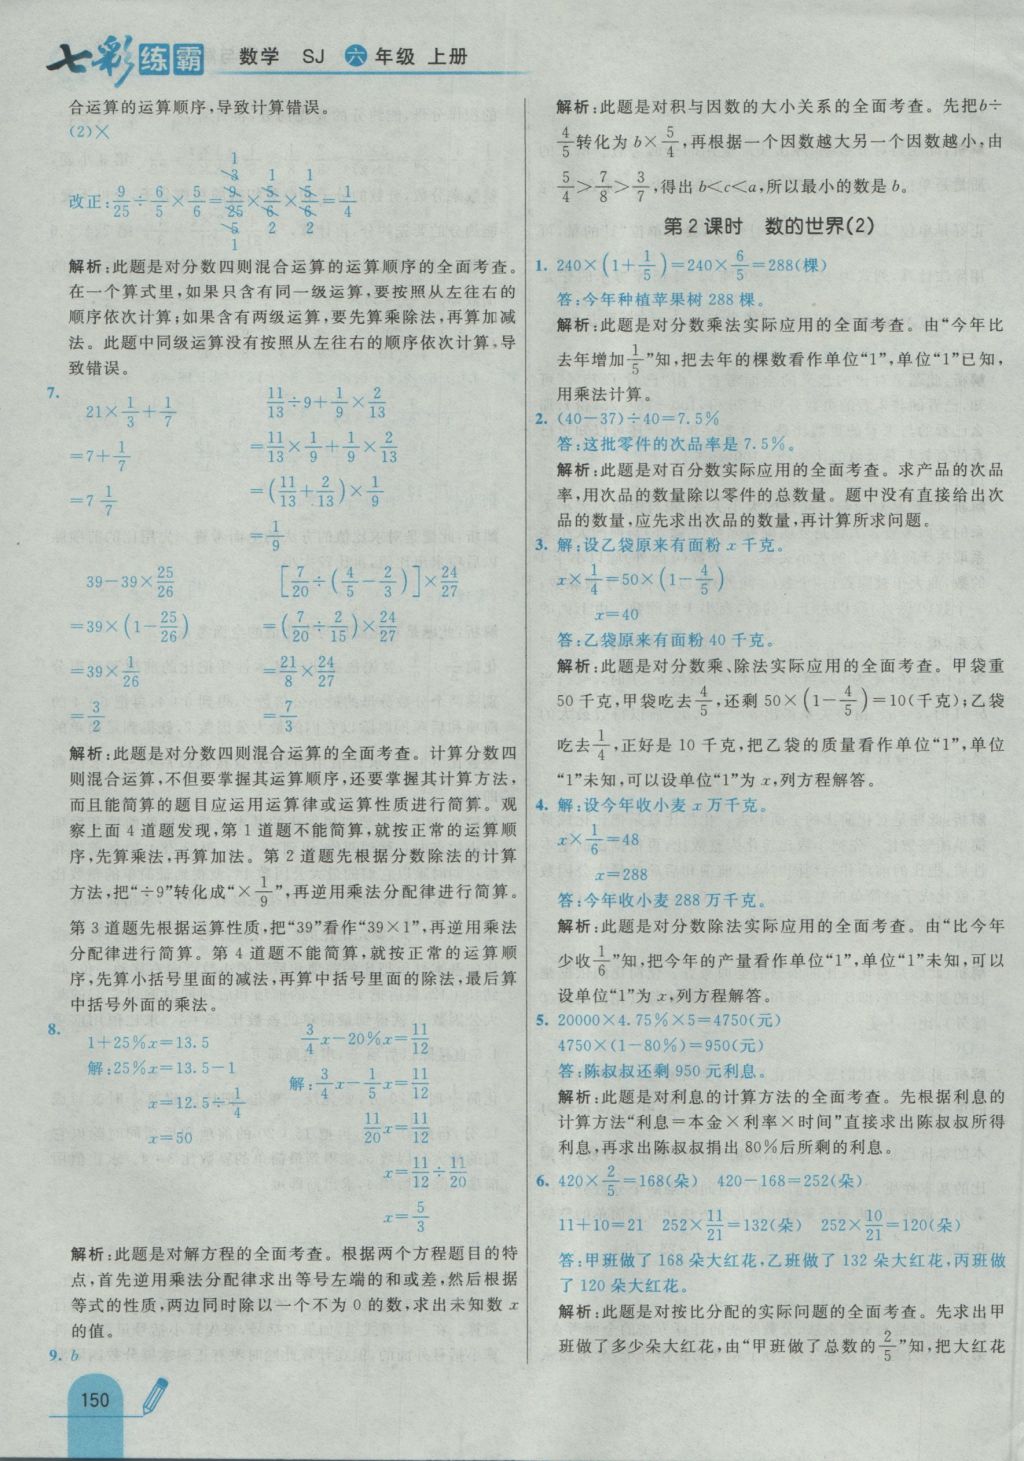 七彩练霸 数学 SJ 六年级 上册
合运算的运算顺序,导致计算错误。
(2)×
改正:9/25÷6/5×5/6=9/25×5/6×5/6=1/4
解析:此题是对分数四则混合运算的运算顺序的全面考查。
在一个算式里,如果只含有同一级运算,要按照从左往右的
顺序依次计算;如果含有两级运算,要先算乘除法,再算加减
法。此题中同级运算没有按照从左往右的顺序依次计算,导
致错误。
7.
21×1/3+1/7
=7+1/7
=7 1/7
11/13÷9+1/9×2/13
=11/13×1/9+1/9×2/13
=(11/13+2/13)×1/9
=1/9
39-39×25/26
=39×(1-25/26)
=39×1/26
=3/2
[7/20÷(4/5-2/3)]×24/27
=(7/20÷2/15)×24/27
=21/8×24/27
=7/3
解析:此题是对分数四则混合运算的全面考查。计算分数四
则混合运算,不但要掌握其运算顺序,还要掌握其计算方法,
而且能简算的题目应运用运算律或运算性质进行简算。观
察上面4道题发现,第1道题不能简算,就按正常的运算顺
序,先算乘法,再算加法。第2道题先根据分数除法的计算
方法,把“÷9”转化成“×1/9”,再逆用乘法分配律进行简算。
第3道题先根据运算性质,把“39”看作“39×1”,再逆用乘法
分配律进行简算。第4道题不能简算,就按正常的运算顺
序,先算小括号里面的减法,再算中括号里面的除法,最后算
中括号外面的乘法。
8.
1+25%x=13.5
解:25%x=13.5-1
x=12.5÷1/4
x=50
3/4x-20%x=11/12
解:3/4x-1/5x=11/12
11/20x=11/12
x=11/12÷11/20
x=5/3
解析:此题是对解方程的全面考查。根据两个方程题目的特
点,首先逆用乘法分配律求出等号左端的和或差,然后根据
等式的性质,两边同时除以一个不为0的数,求出未知数x
的值。
9. b
150
解析:此题是对积与因数的大小关系的全面考查。先把b÷
4/5转化为b×5/4,再根据一个因数越大另一个因数越小,由
5/4>7/8>3/7,得出b<c<a,所以最小的数是b。
第2课时 数的世界(2)
1. 240×(1+1/5)=240×6/5=288(棵)
答:今年种植苹果树288棵。
解析:此题是对分数乘法实际应用的全面考查。由“今年比
去年增加1/5”知,把去年的棵数看作单位“1”,单位“1”已知,
用乘法计算。
2. (40-37)÷40=7.5%
答:这批零件的次品率是7.5%。
解析:此题是对百分数实际应用的全面考查。求产品的次品
率,用次品的数量除以零件的总数量。题中没有直接给出次
品的数量,应先求出次品的数量,再计算所求问题。
3. 解:设乙袋原来有面粉x千克。
x×1/4=50×(1-4/5)
x=40
答:乙袋原来有面粉40千克。
解析:此题是对分数乘、除法实际应用的全面考查。甲袋重
50千克,甲袋吃去4/5,还剩50×(1-4/5)=10(千克);乙袋
吃去1/4,正好是10千克,把乙袋的质量看作单位“1”,单位
“1”未知,可以设单位“1”为x,列方程解答。
4. 解:设今年收小麦x万千克。
x×1/6=48
x=288
答:今年收小麦288万千克。
解析:此题是对分数除法实际应用的全面考查。由“比今年
少收1/6”知,把今年的产量看作单位“1”,单位“1”未知,可以
设单位“1”为x,列方程解答。
5. 20000×4.75%×5=4750(元)
4750×(1-80%)=950(元)
答:陈叔叔还剩950元利息。
解析:此题是对利息的计算方法的全面考查。先根据利息的
计算方法“利息=本金×利率×时间”直接求出陈叔叔所得
利息,再求出陈叔叔捐出80%后所剩的利息。
6. 420×2/5=168(朵) 420-168=252(朵)
11+10=21 252×11/21=132(朵) 252×10/21=120(朵)
答:甲班做了168朵大红花,乙班做了132朵大红花,丙班做
了120朵大红花。
解析:此题是对按比分配的实际问题的全面考查。先求出甲
班做了多少朵大红花,由“甲班做了总数的2/5”知,把大红花